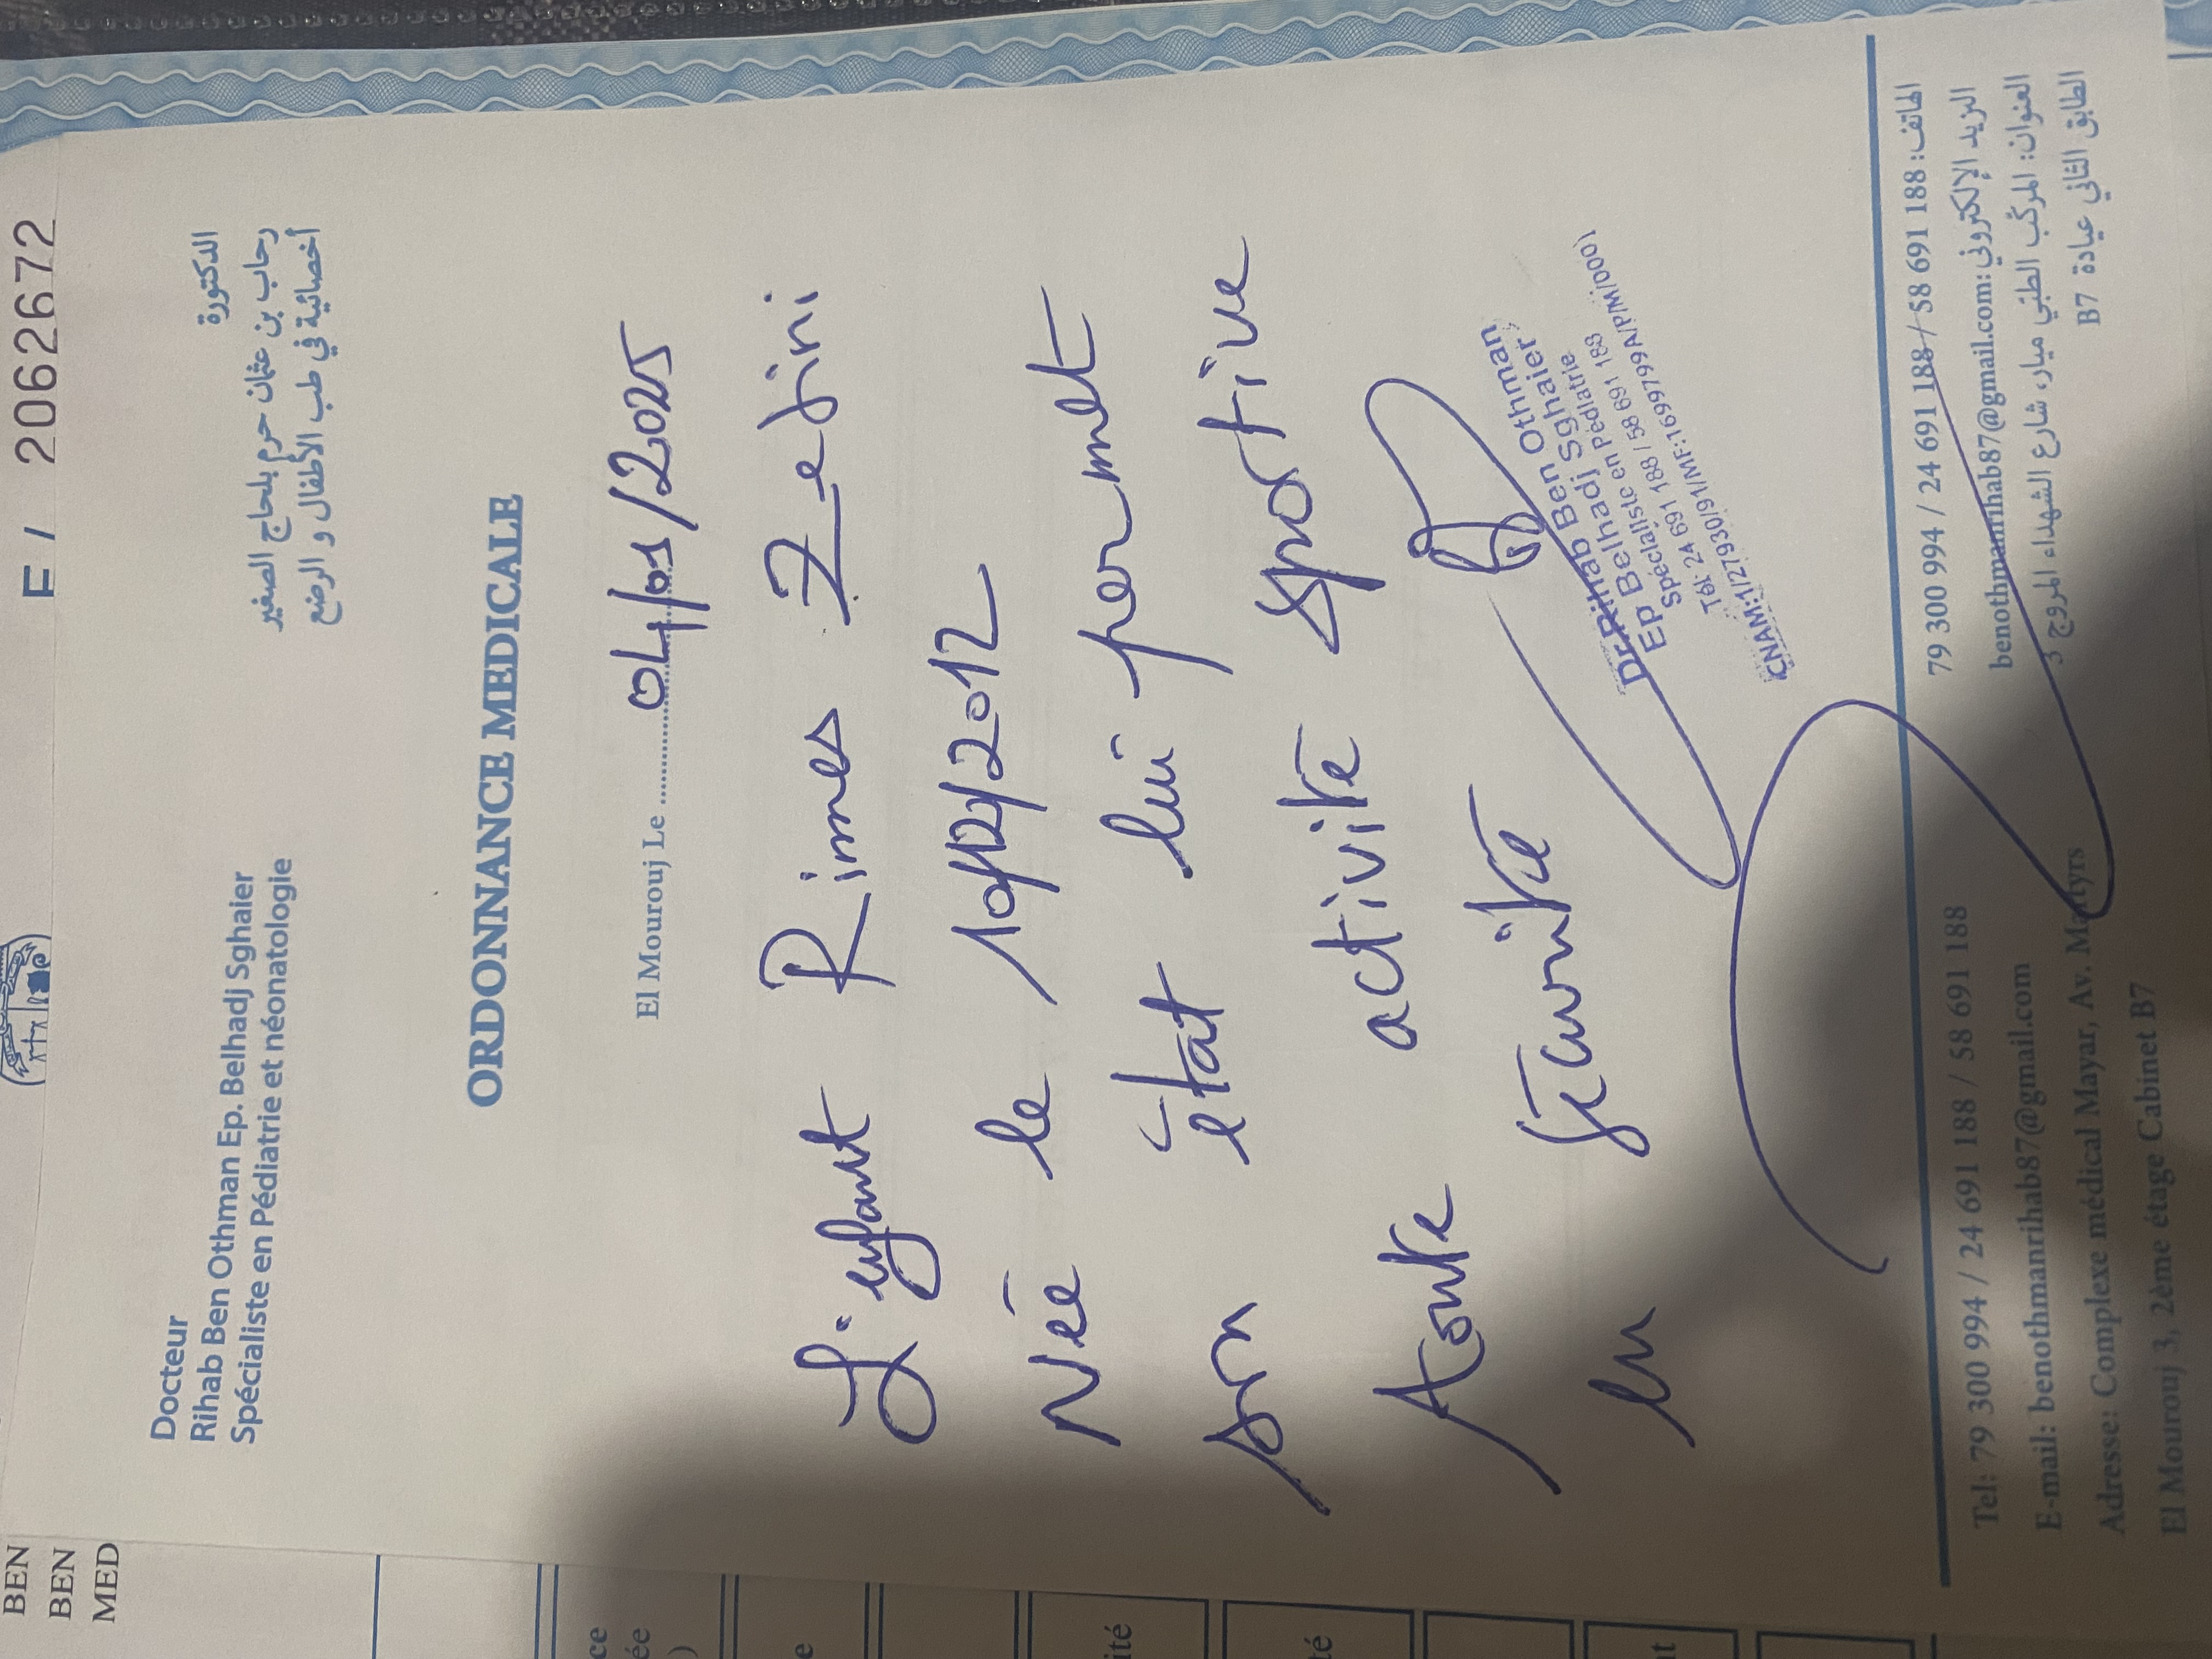 E / 2062672
BEN
BEN
MED
Docteur
Rihab Ben Othman Ep. Belhadj Sghaier
Spécialiste en Pédiatrie et néonatologie
الدكتورة
رحاب بن عثمان حرم بلحاج الصغير
أخصائية في طب الأطفال و الرضع
ORDONNANCE MEDICALE
El Mourouj Le 04/01/2025
L'enfant Rimes
Née le 10/12/2012
son état lui permet
activité sportive
en sécurité
Dr Rihab Ben Othman
Ep Belhadj Sghaier
Spécialiste en Pédiatrie
Tél: 24 691 188 / 58 691 188
CNAM:1/27930/91/MF:1699799A/P/M/000
Tel: 79 300 994 / 24 691 188 / 58 691 188
E-mail: benothmanrihab87@gmail.com
Adresse: Complexe médical Mayar, Av. Martyrs
El Mourouj 3, 2ème étage Cabinet B7
الهاتف: 188 691 58 / 188 691 24 / 994 300 79
البريد الإلكتروني: benothmanrihab87@gmail.com
العنوان: المركب الطبي ميار، شارع الشهداء المروج 3
الطابق الثاني عيادة B7
ce
ée
)
e
ité
té
t